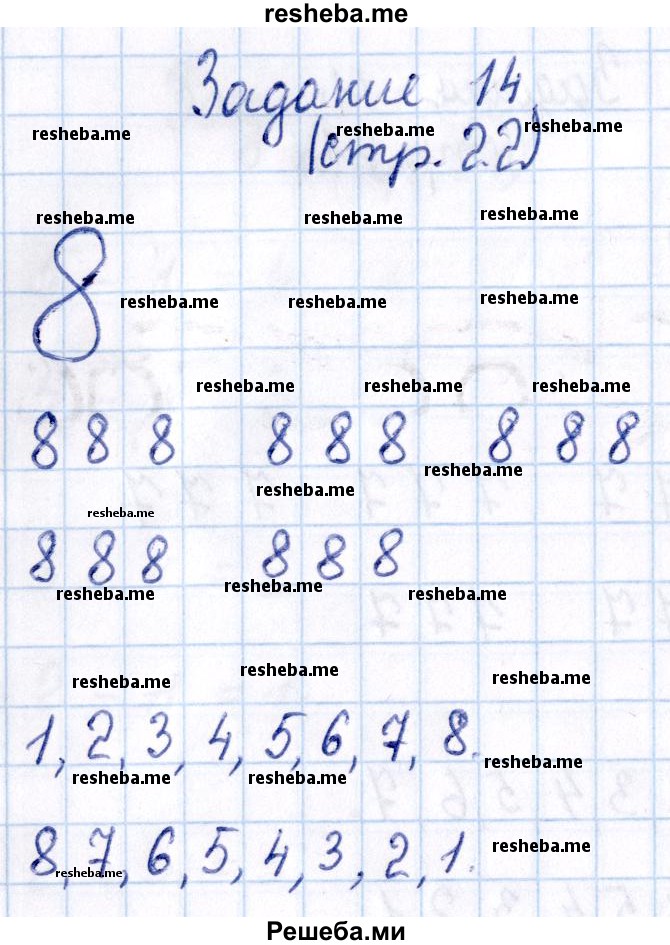 resheba.me
Задание 14
resheba.me resheba.me resheba.me
(стр. 22)
resheba.me resheba.me resheba.me
8
resheba.me resheba.me resheba.me
resheba.me resheba.me resheba.me
8 8 8 8 8 8 8 8 8
resheba.me
resheba.me
resheba.me
8 8 8 8 8 8
resheba.me resheba.me resheba.me
resheba.me resheba.me resheba.me
1, 2, 3, 4, 5, 6, 7, 8.
resheba.me resheba.me resheba.me
8, 7, 6, 5, 4, 3, 2, 1.
resheba.me resheba.me
Решеба.ми